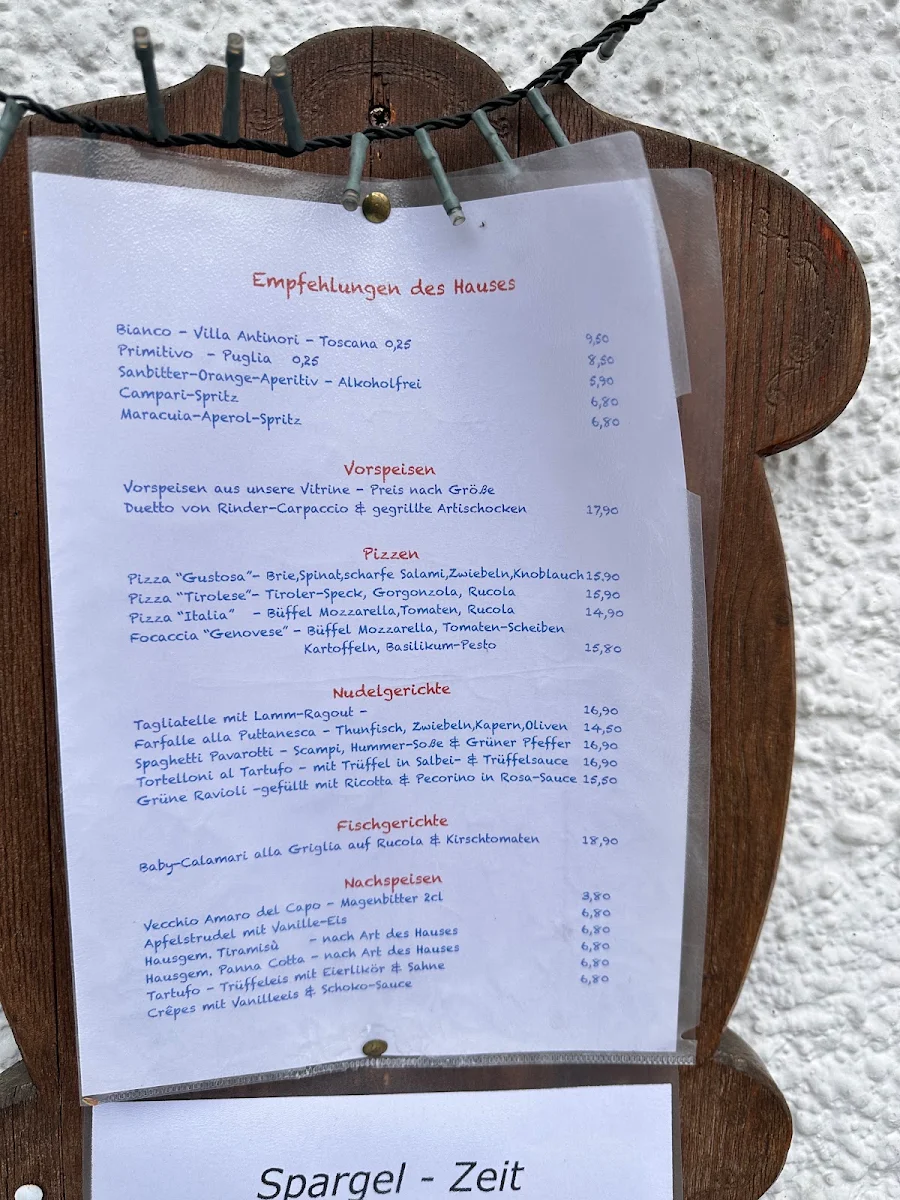 Empfehlungen des Hauses
Bianco - Villa Antinori - Toscana 0,25 9,50
Primitivo - Puglia 0,25 8,50
Sanbitter-Orange-Aperitiv - Alkoholfrei 5,90
Campari-Spritz 6,80
Maracuia-Aperol-Spritz 6,80
Vorspeisen
Vorspeisen aus unsere Vitrine - Preis nach Größe
Duetto von Rinder-Carpaccio & gegrillte Artischocken 17,90
Pizzen
Pizza "Gustosa"- Brie,Spinat,scharfe Salami,Zwiebeln,Knoblauch 15,90
Pizza "Tirolese"- Tiroler-Speck, Gorgonzola, Rucola 15,90
Pizza "Italia" - Büffel Mozzarella,Tomaten, Rucola 14,90
Focaccia "Genovese" - Büffel Mozzarella, Tomaten-Scheiben
Kartoffeln, Basilikum-Pesto 15,80
Nudelgerichte
Tagliatelle mit Lamm-Ragout - 16,90
Farfalle alla Puttanesca - Thunfisch, Zwiebeln,Kapern,Oliven 14,50
Spaghetti Pavarotti - Scampi, Hummer-Soße & Grüner Pfeffer 16,90
Tortelloni al Tartufo - mit Trüffel in Salbei- & Trüffelsauce 16,90
Grüne Ravioli -gefüllt mit Ricotta & Pecorino in Rosa-Sauce 15,50
Fischgerichte
Baby-Calamari alla Griglia auf Rucola & Kirschtomaten 18,90
Nachspeisen
Vecchio Amaro del Capo - Magenbitter 2cl 3,80
Apfelstrudel mit Vanille-Eis 6,80
Hausgem. Tiramisù - nach Art des Hauses 6,80
Hausgem. Panna Cotta - nach Art des Hauses 6,80
Tartufo - Trüffeleis mit Eierlikör & Sahne 6,80
Crêpes mit Vanilleeis & Schoko-Sauce 6,80
Spargel - Zeit